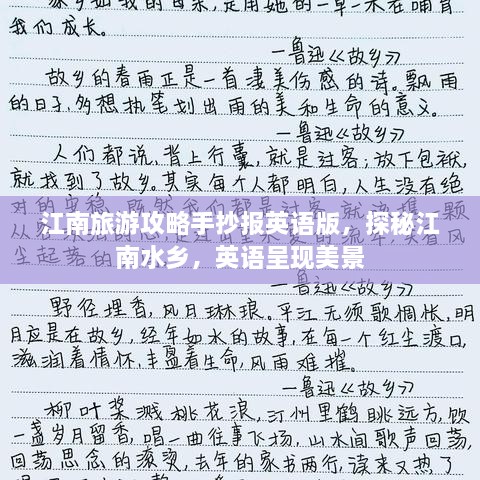 家乡如我的母亲，是用她的一草一木在哺育
我们成长。
—鲁迅《故乡》
故乡的春雨正是一首凄美伤感的诗。飘雨
的日子，多想执笔划出雨的美和生命的意义。
—鲁迅《故乡》
人们都说，背上行囊，就是过客；放下包袱，
就找到了故乡。其实每个人都明白，人生没有绝
江南旅游攻略手抄报英语版，探秘江
南水乡，英语呈现美景
—鲁迅《故乡》
野径埋香，风月琳琅。平江无须歌惆怅，明
月应是在故乡，经年如水的故事，在每一个红尘渡口，
滋润着情怀，丰盈着生命，风雨难摧。
—鲁迅《故乡》
柳叶桨溅桃花浪，汀州里鹤眺远方，饮
一盏岁月留香，唱一曲往事飞扬，山水间歌声回荡，
回荡思念的滚烫，去年的家书两行，读来又热了